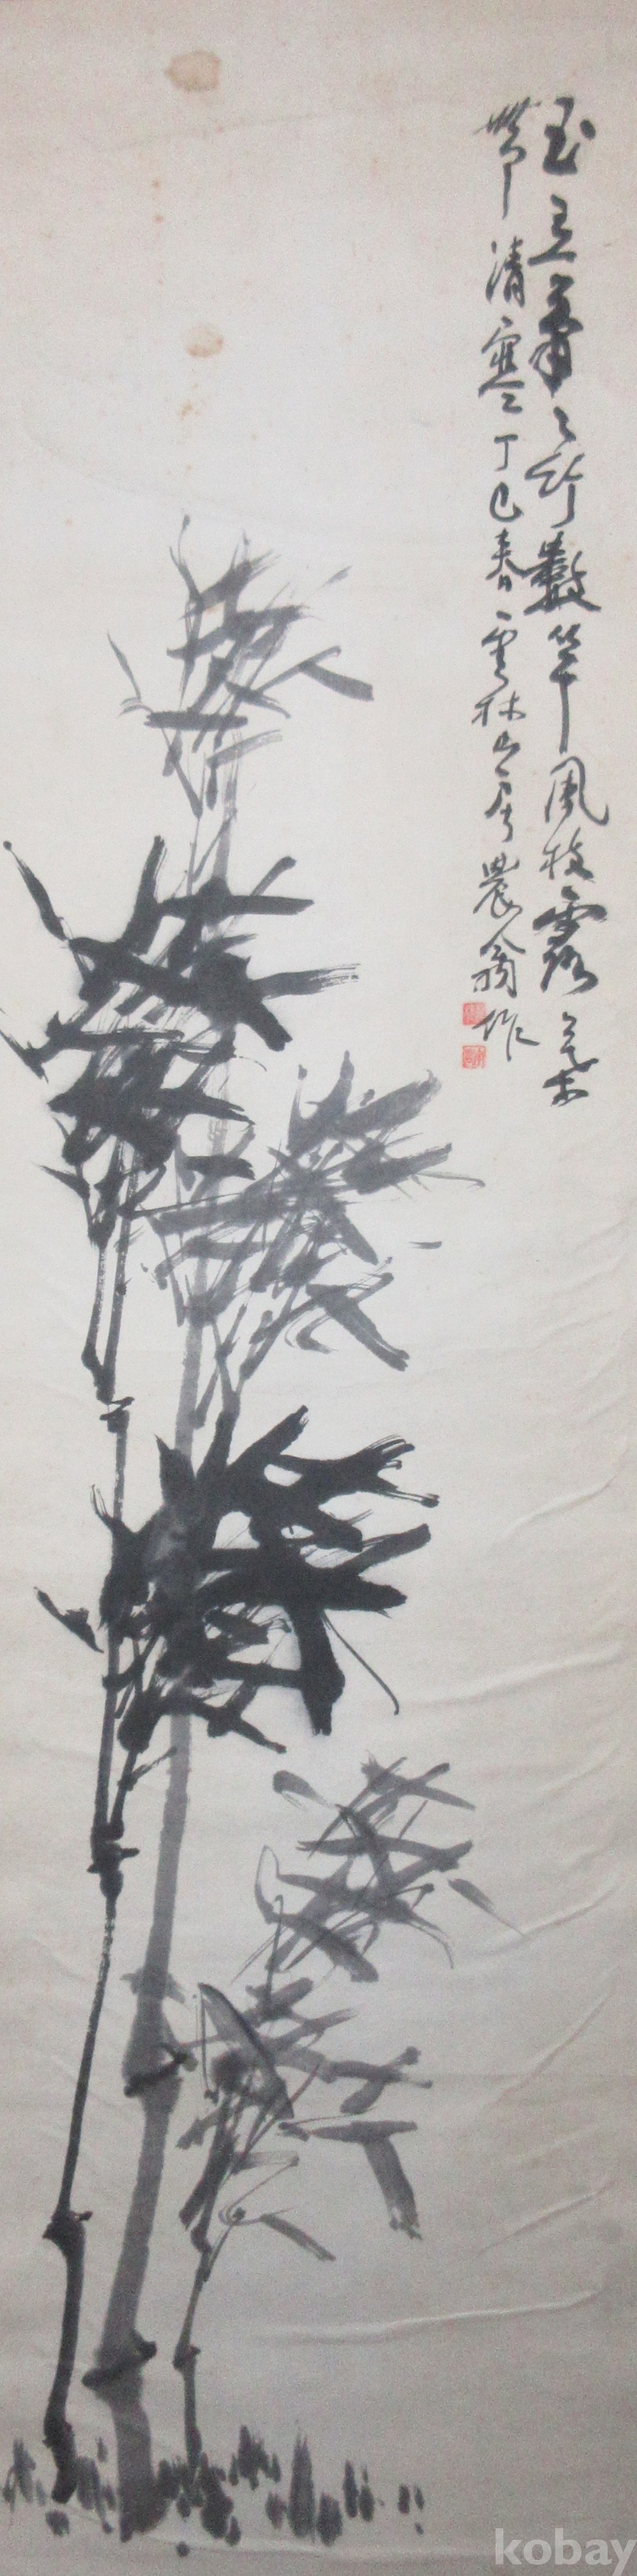 玉立蕭〻竹數竿風枝露葉
帶清寒丁巳春雲林山房農翁作
kobay